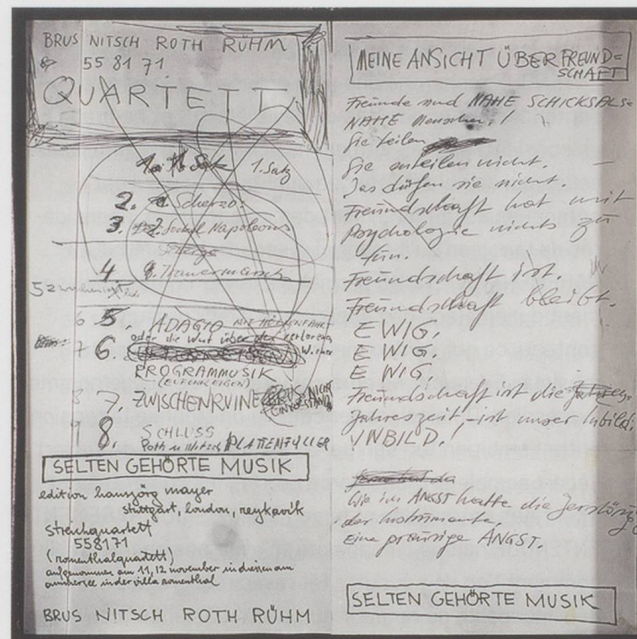 BRUS NITSCH ROTH RÜHM
55 81 71
QUARTETT
1. Satz
2. Scherzo
3. Napoleons
4. Trauermarsch
5. ADAGIO
6. oder die Wut über den verlorenen
PROGRAMMUSIK
7. ZWISCHENRUINE
8. SCHLUSS
Roth u Nitsch PLATTENFÜLLER
SELTEN GEHÖRTE MUSIK
edition hansjörg mayer
stuttgart, london, reykjavik
streichquartett
558171
(romenthalquartett)
aufgenommen am 11, 12 november in diessen am
ammersee in der villa romenthal
BRUS NITSCH ROTH RÜHM
MEINE ANSICHT ÜBER FREUND=
SCHAFT
Freunde sind NAHE SCHICKSALS=
NAHE Menschen!
Sie teilen
Sie urteilen nicht.
Das dürfen sie nicht.
Freundschaft hat mit
Psychologie nichts zu
tun.
Freundschaft ist.
Freundschaft bleibt.
EWIG.
EWIG.
EWIG.
Freundschaft ist die
Jahreszeit, - ist unser
VNBILD.
Wie im ANGST hatte die
der Instrumente.
Eine ANGST.
SELTEN GEHÖRTE MUSIK